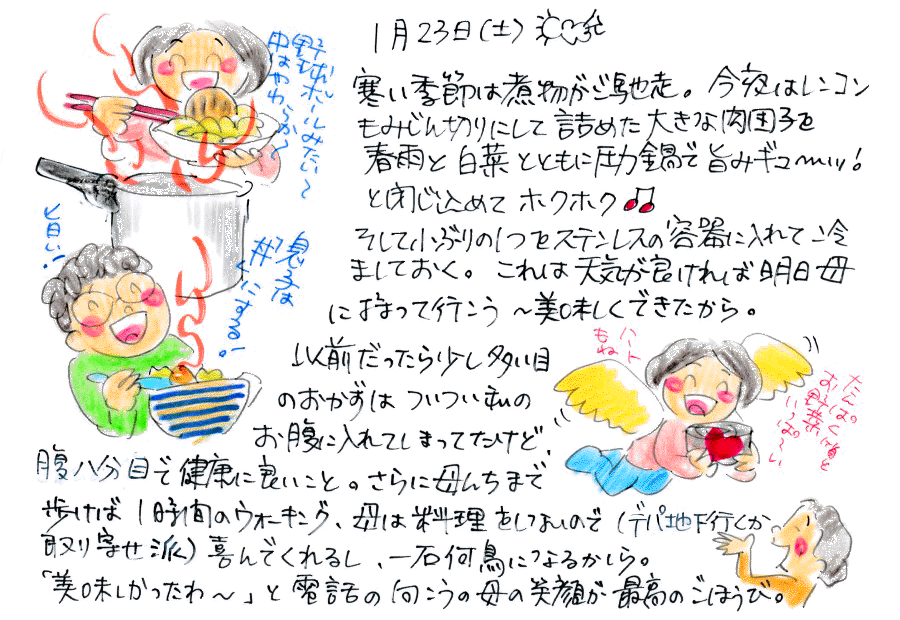 1月23日(土)
寒い季節は煮物がご馳走。今夜はレンコン
もみじん切りにして詰めた大きな肉団子を
春雨と白菜とともに圧力鍋で旨みギュ〜ッ!
と閉じ込めてホクホク♫
そして小ぶりの1つをステンレスの容器に入れて冷
ましておく。これは天気が良ければ明日母
に持って行こう〜美味しくできたから。
以前だったら少し多い目
のおかずはついつい私の
お腹に入れてしまってたけど、
腹八分目で健康に良いこと。さらに母んちまで
歩けば1時間のウォーキング、母は料理をしないので(デパ地下行くか
取り寄せ派)喜んでくれるし、一石何鳥になるかしら。
「美味しかったわ〜」と電話の向こうの母の笑顔が最高のごほうび。
野球ボールみたい〜
中はやわらか〜
旨い!
息子は
丼くにする!
ハート
もね
たんぱく質と
お野菜
いっぱ〜い